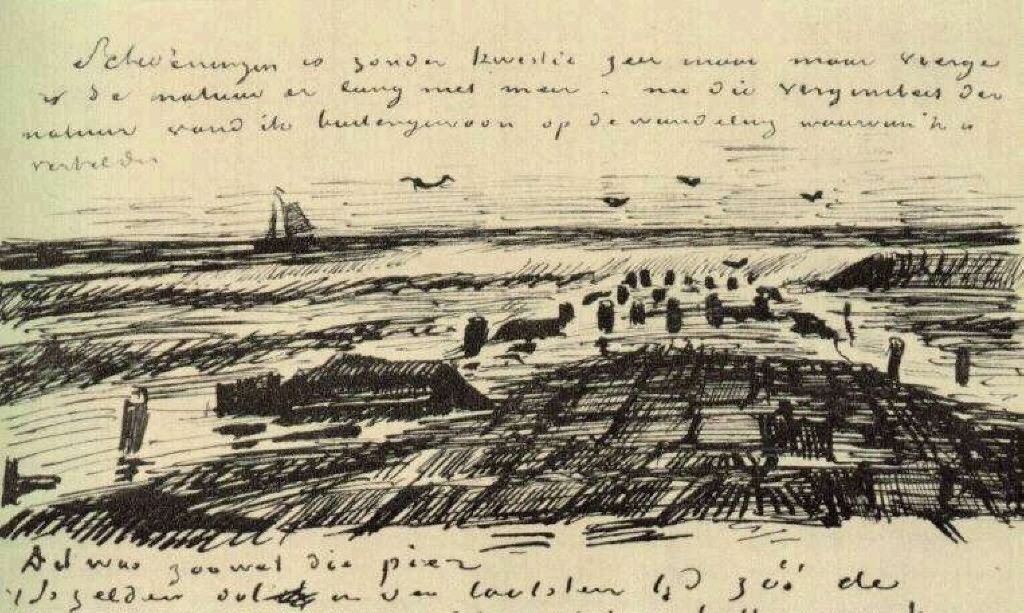 Scheveningen is zonder kwestie zeer mooi maar vierge
is de natuur er lang niet meer - nu die virginiteit der
natuur vond ik buitengewoon op de wandeling waarvan ik u
vertelde
Dit was zoowat die pier
zelden in den laatsten tijd zóó de